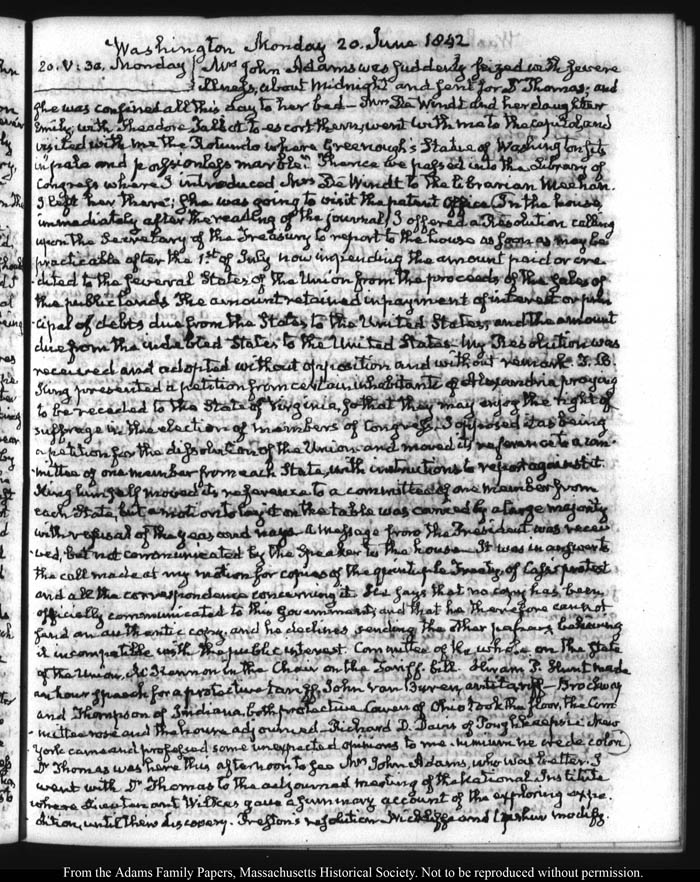 Washington Monday 20. June 1842
20. V:30. Monday Mrs John Adams was suddenly seized with severe
illness, about Midnight and sent for Dr Thomas, and
she was confined all this day to her bed— Mrs De Windt and her daughter
Emily, with Theodore Talbot to escort them, went with me to the Capitol, and
visited with me the Rotunda where Greenough's Statue of Washington sits
in pale and passionless marble." Thence we passed into the Library of
Congress where I introduced Mrs De Windt to the Librarian Meehan.
I left her there; she was going to visit the patent Office. In the house,
immediately after the reading of the journal, I offered a Resolution calling
upon the Secretary of the Treasury to report to the house as soon as may be
practicable after the 1st of July now impending the amount paid or cre
dited to the several States of the Union from the proceeds of the sales of
the public lands The amount retained in payment of interest or prin
cipal of debts due from the States to the United States, and the amount
due from the indebted States to the United States— My Resolution was
received and adopted without opposition and without remark. T. B.
King presented a petition from certain inhabitants of Alexandria praying
to be receded to the State of Virginia, so that they may enjoy the right of
suffrage in the election of members of Congress. I opposed it as being
a petition for the dissolution of the Union and moved its reference to a com
mittee of one member from each State, with instructions to report against it.
King himself moved its reference to a committee of one member from
each State, but a motion to lay it on the table was carried by a large majority
with refusal of the yeas and nays— A message from the President was recei
ved, but not communicated by the Speaker to the house— It was in answer to
the call made at my motion for copies of the quintuple Treaty, of Cass's protest
and all the correspondence concerning it. He says that no copy has been
officially communicated to this Government, and that he therefore cannot
send an authentic copy, and he declines sending the other papers believing
it incompatible with the public interest. Committee of the whole on the State
of the Union, McKennon in the Chair on the Tariff bill Hiram P. Hunt made
an hour speech for a protective tariff, John Van Buren, antitariff— Brockway
and Thompson of Indiana, both protective Caver of Ohio took the floor, the Com
mittee rose and the house adjourned. Richard D. Davis of Poughkeepsie New
York came and professed some unexpected opinions to me. nimium ne crede colori
Dr Thomas was here this afternoon to see Mrs John Adams, who was better. I
went with Dr Thomas to the adjourned meeting of the National Institute
where Lieutenant Wilkes gave a summary account of the exploring expe
dition, until their discovery. Preston's resolution Wickliffe and Upshur modify.
From the Adams Family Papers, Massachusetts Historical Society. Not to be reproduced without permission.